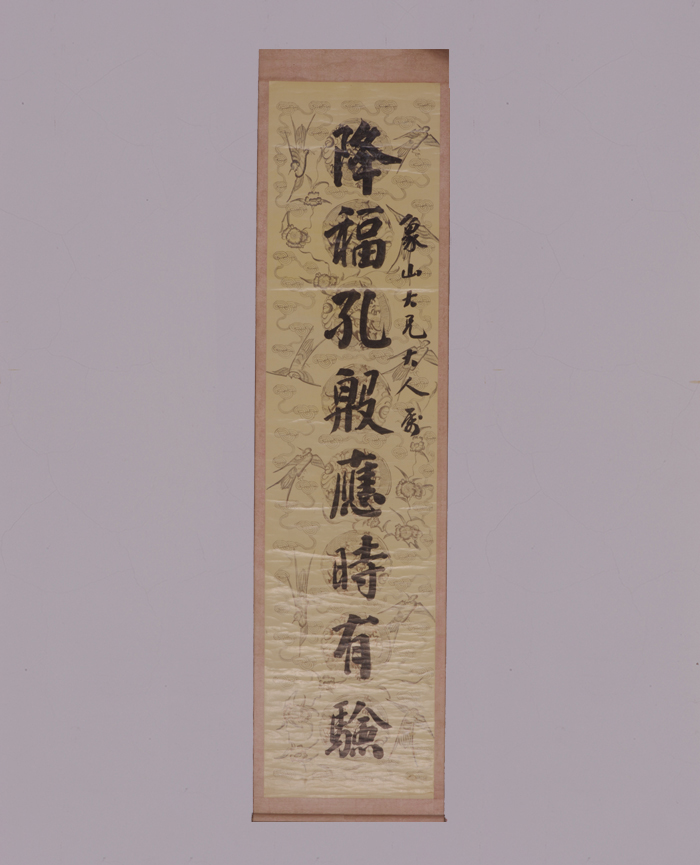 象山大兄大人屬
降福孔殷應時有驗